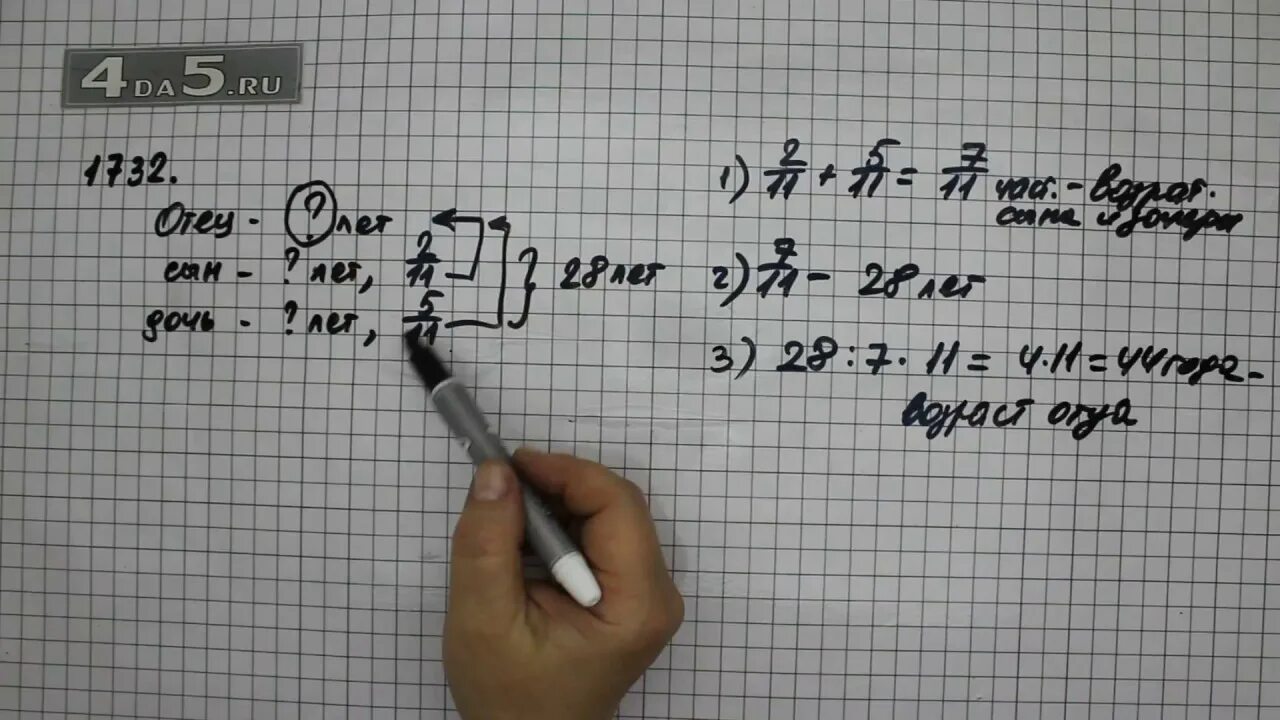 4DA5.RU
1732.
Отец - ? лет
сын - ? лет, 2/11
дочь - ? лет, 5/11
} 28 лет
1) 2/11 + 5/11 = 7/11 част. - возраст.
сына и дочери
2) 7/11 - 28 лет
3) 28 : 7 · 11 = 4 · 11 = 44 года -
возраст отца